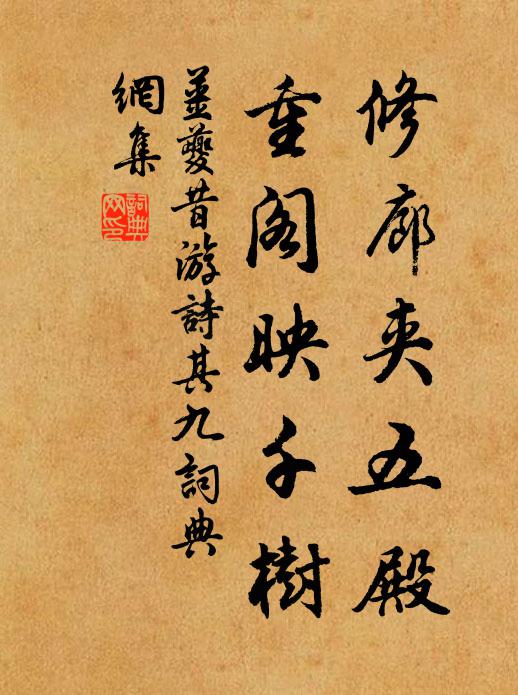 修廊夹五殿
重阁映千樹
姜夔昔游詩其九詞典
網集
詞典
网印